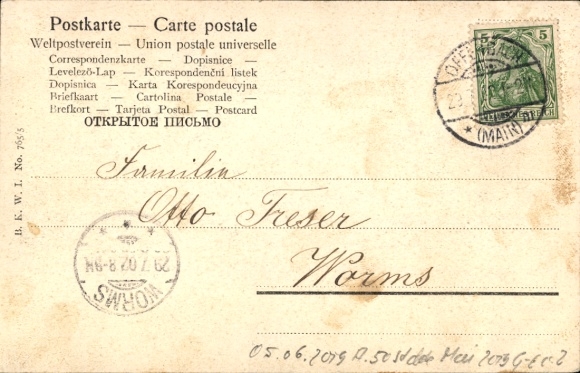 Postkarte — Carte postale
Weltpostverein — Union postale universelle
Correspondenzkarte — Dopisnice —
Levelező-Lap — Korespondenční listek
Dopisnica — Karta Korespondencyjna
Briefkaart — Cartolina Postale —
Brefkort — Tarjeta Postal — Postcard
ОТКРЫТОЕ ПИСЬМО
5 5
OFFENBACH
* (MAIN)
B. K. W. I. No. 765/5
Familie
Otto Treser
Worms
29.7.02.8-9N
WORMS
05.06.2019